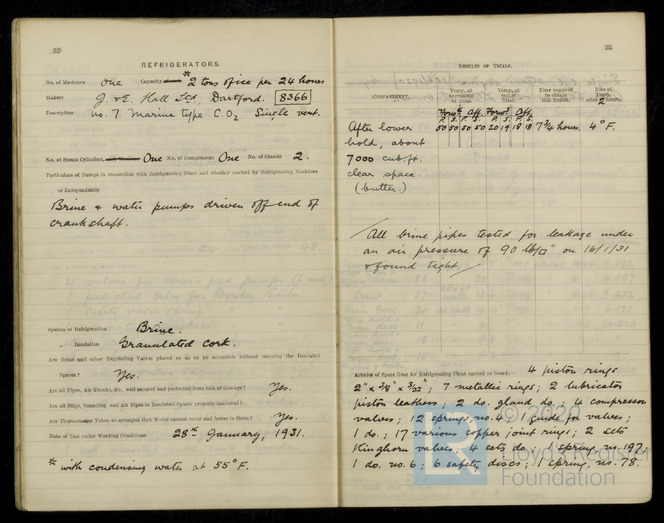 32
REFRIGERATORS.
No. of Machines One Capacity * 2 tons of ice per 24 hours
Makers J. & E. Hall Ltd, Dartford. 8366
Description No. 7 Marine type CO2 Single vert.
No. of Steam Cylinders, One No. of Compressors One No. of Cranks 2.
Particulars of Pumps in connection with Refrigerating Plant and whether worked by Refrigerating Machines
or Independently
Brine & water pumps driven off end of
crankshaft.
System of Refrigeration Brine.
„ Insulation Granulated cork.
Are Brine and other Regulating Valves placed so as to be accessible without entering the Insulated
Spaces? Yes.
Are all Pipes, Air Trunks, &c., well secured and protected from risk of damage? Yes.
Are all Bilge, Sounding and Air Pipes in Insulated Spaces properly insulated?
Are Thermometer Tubes so arranged that Water cannot enter and freeze in them? Yes.
Date of Test under Working Conditions 28th January, 1931.
* with condensing water at 55°F.
33
RESULTS OF TRIALS.
COMPARTMENT. Temp. at beginning of Trial. Temp. at end of Trial. Time required to obtain this Result. Rise of Temp. after 2 hours.
Forwd. Aft. Forwd. Aft.
P. S. P. S. P. S. P. S.
After lower 50 50 50 50 20 19 18 18 7¾ hours. 4°F.
hold, about
7000 cub. ft.
clear space.
(butter)
All brine pipes tested for leakage under
an air pressure of 90 lb/□" on 16/1/31
& found tight.
Articles of Spare Gear for Refrigerating Plant carried on board:— 4 piston rings
2" x 3/8" x 3/32"; 7 metallic rings; 2 lubricator
piston leathers; 2 do. gland do.; 4 compressor
valves; 12 springs no. 4; 1 guide for valves;
1 do.; 17 various copper joint rings; 2 sets
Kinghorn valves, 4 sets do.; 1 spring no. 197;
1 do. no. 6; 6 safety discs; 1 spring, no. 78.
© 2020
Lloyd's Register
Foundation